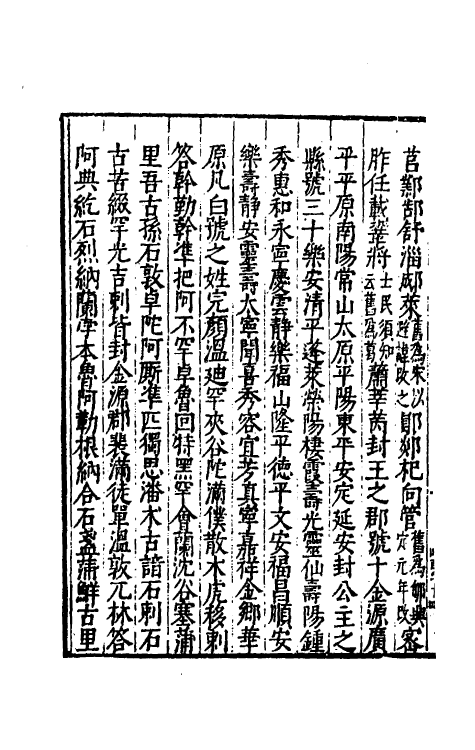 莒鄭郜舒淄郕萊舊爲宋以避諱改之鄖郯杞向管舊爲郇興定元年改密
胙任戴鞏將士民須知云舊爲葛蕭莘芮封王之郡號十金源廣
平平原南陽常山太原平陽東平安定延安封公主之
縣號三十樂安清平蓬萊榮陽棲霞壽光靈仙壽陽鍾
秀惠和永寧慶雲靜樂福山隆平德平文安福昌順安
樂壽靜安靈壽大寧聞喜秀容宜芳真寧嘉祥金鄉華
原凡白號之姓完顔溫廸罕夾谷陀滿僕散木虎移剌
答幹勒幹準把阿不罕卓魯回特黑罕會蘭沈谷塞蒲
里吾古孫石敦卓陀阿厮準匹獨思潘木古諳石剌石
古苦綴罕光吉剌皆封金源郡裴滿徒單溫敦兀林答
阿典紇石烈納闌孛本魯阿勒根納合石盞蒲鮮古里